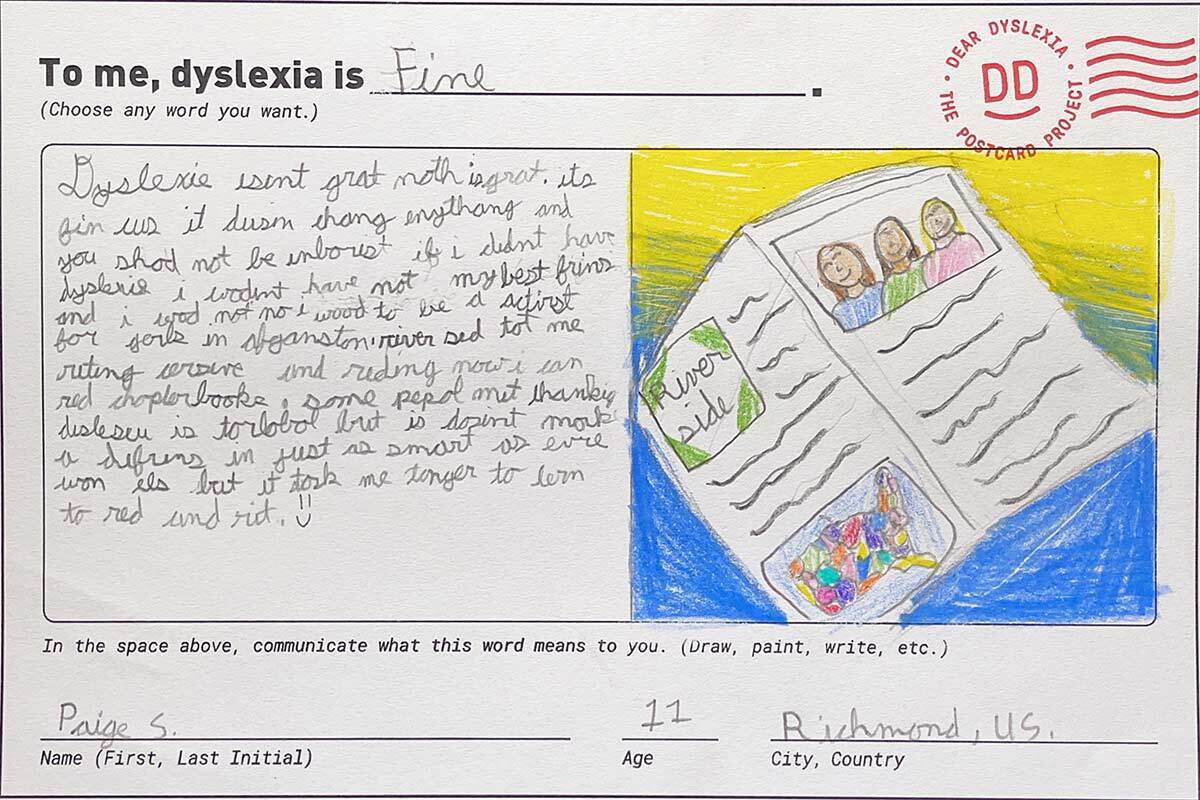 To me, dyslexia is Fine.
(Choose any word you want.)
DEAR DYSLEXIA • THE POSTCARD PROJECT •
DD
Dyslexie isint grat noth is grat. its
fin cus it dusm chang enythang and
you shod not be inborist if i didnt have
dyslexie i wodint have not my best frins
and i wod not no i wood to be a actirst
for gerls in afganston. river sed tot me
riting cersive and reding now i can
red chapterbooks. some pepol mit thankig
dislescu is torlobol but is dosint mack
a difrens im just as smart as evre
won els but it tock me longer to lern
to red and rit.
River
side
In the space above, communicate what this word means to you. (Draw, paint, write, etc.)
Paige S.
11
Richmond, US.
Name (First, Last Initial)
Age
City, Country